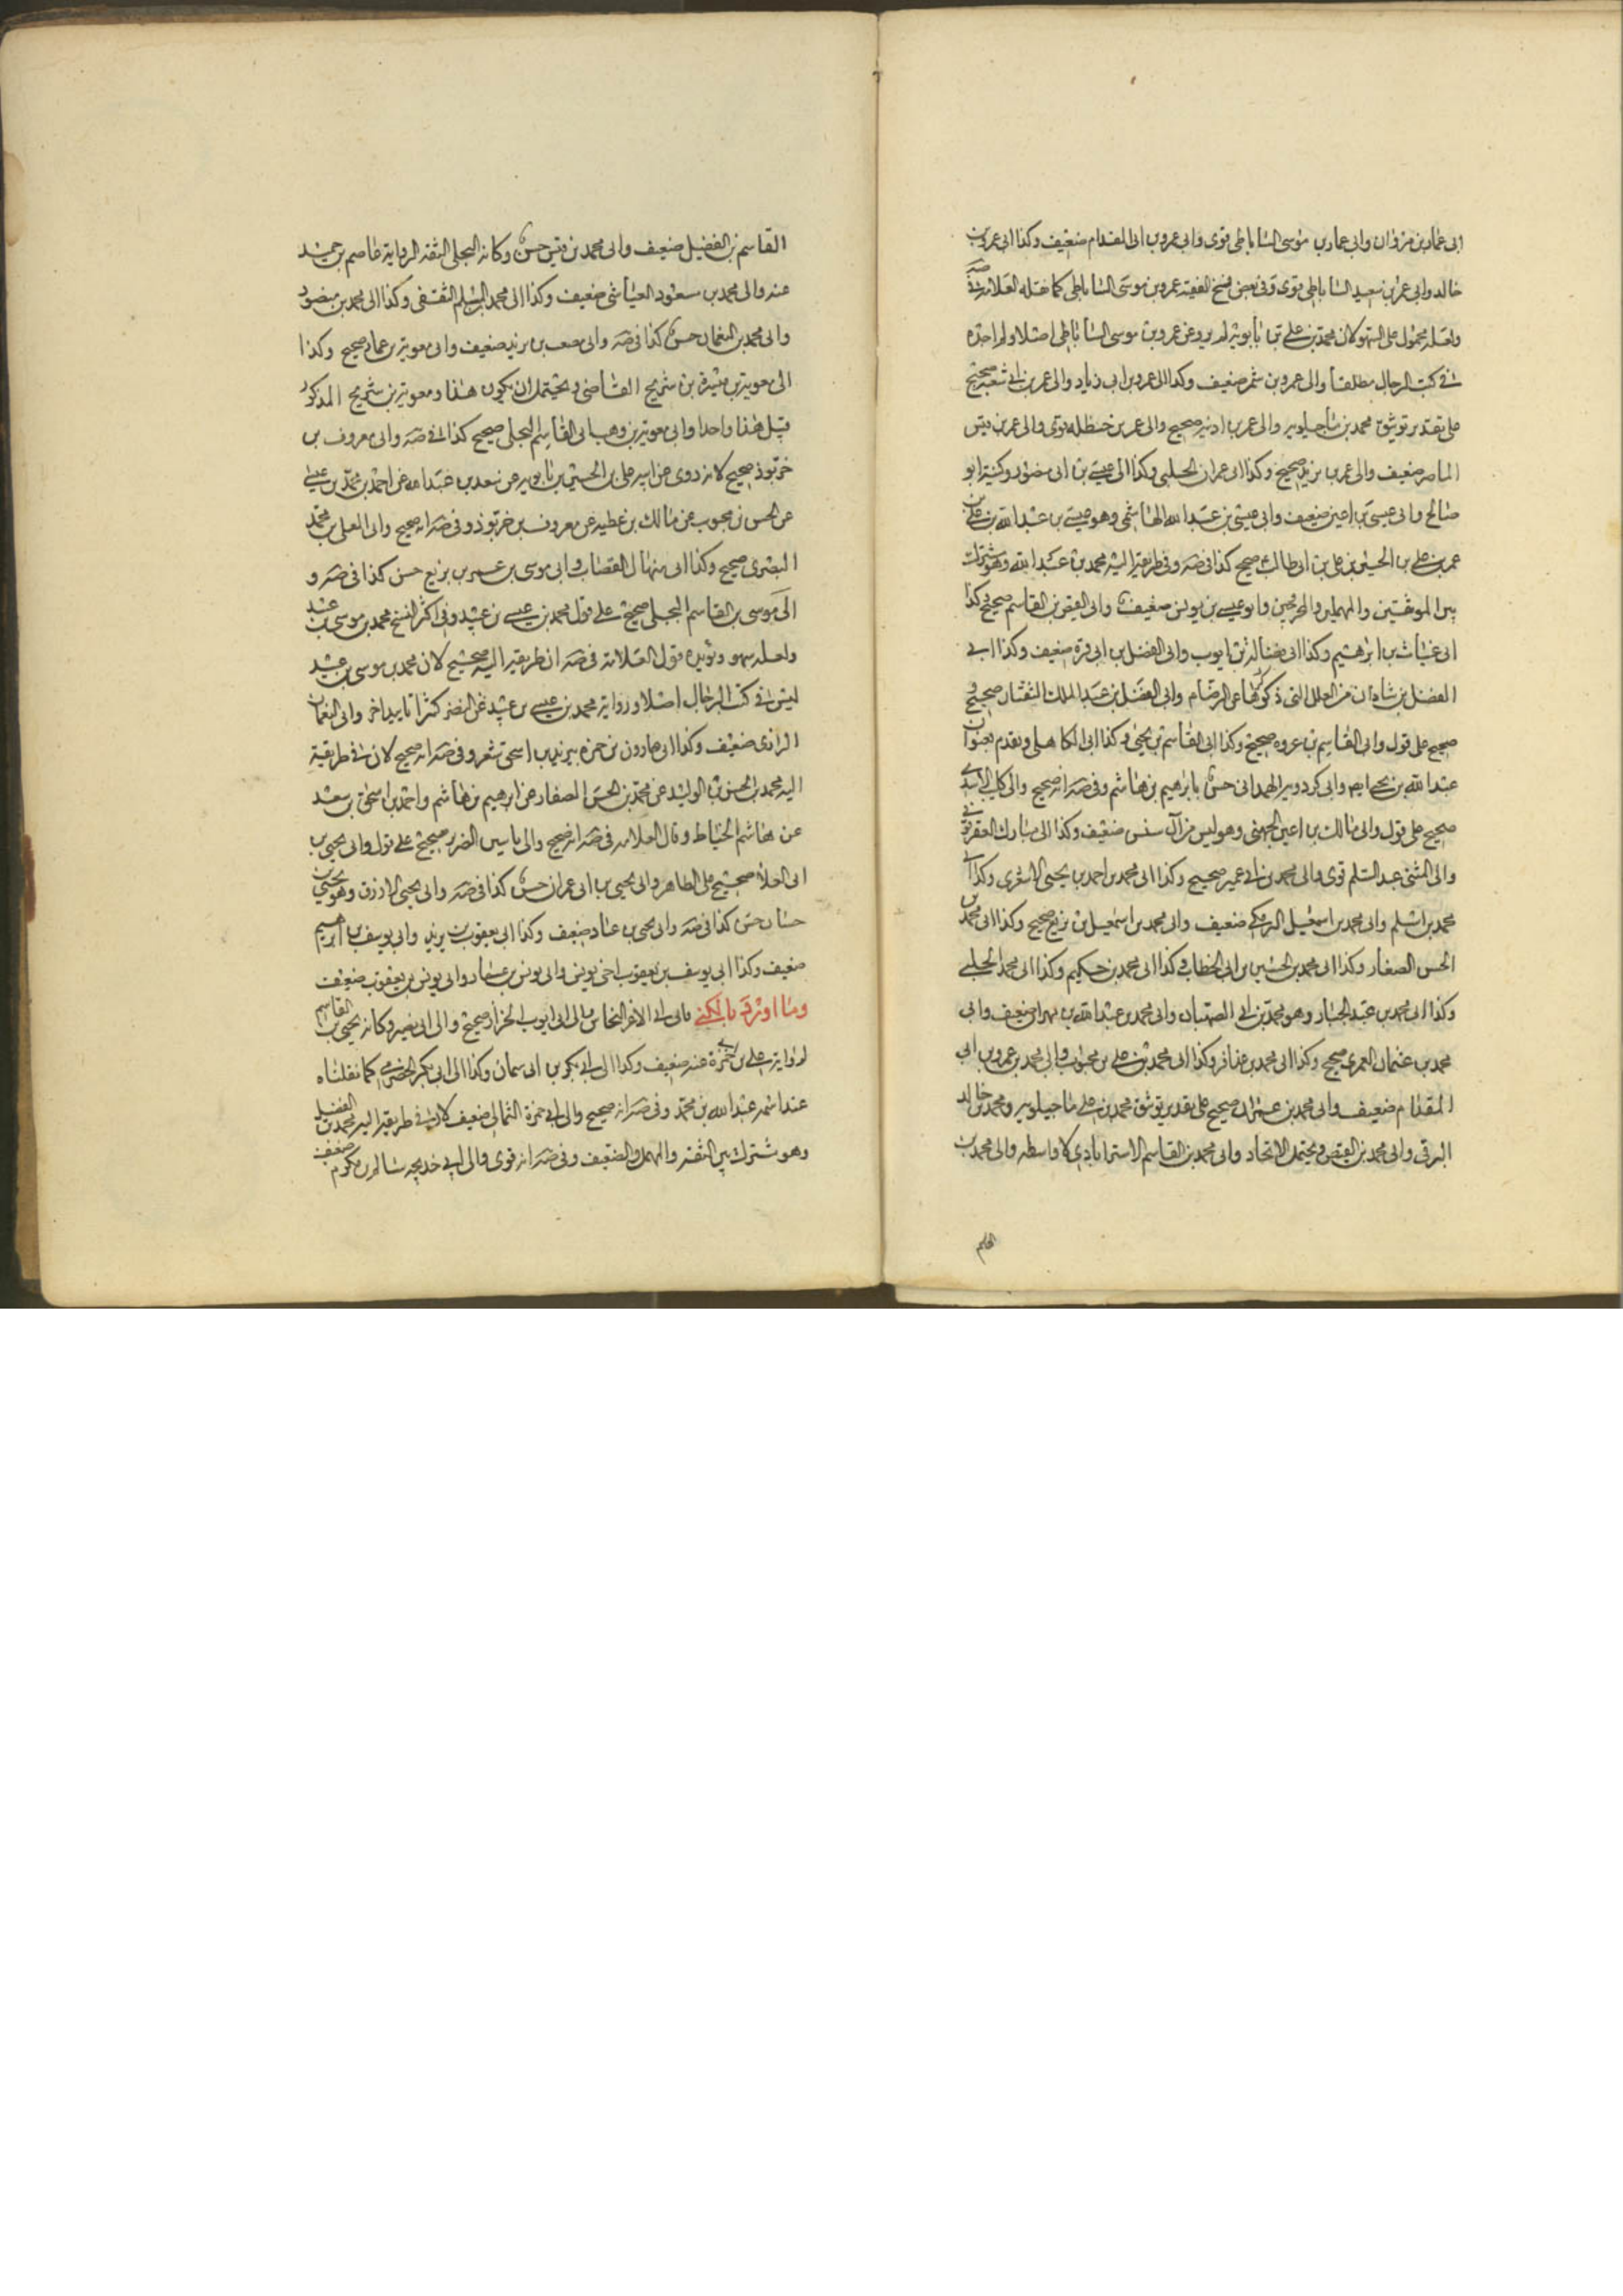 ابى عمار بن مروان وابى عمار بن موسى الساباطى قوى وابى عمرو بن ابى المقدام ضعيف وكذا الى عمرو بن
خالد وابى عمر بن سعيد الساباطى قوى وفى بعض نسخ الفقيه عمرو بن موسى الساباطى كما نقله العلامة فى صه
ولعله محمول على السهو لان محمد بن على بن بابويه لم يرو عن عمرو بن موسى الساباطى اصلا ولم اجده
فى كتب الرجال مطلقا والى عمرو بن شمر ضعيف وكذا الى عمرو بن ابى زياد والى عمر بن ابى شعبه صحيح
على تقدير توثيق محمد بن على ماجيلويه والى عمر بن اذينه صحيح والى عمر بن حنظله قوى والى عمر بن قيس
الماصر ضعيف والى عمر بن يزيد صحيح وكذا الى عمران الحلبى وكذا الى عيسى بن ابى منصور وكنيته ابو
صالح وابى عيسى بن اعين ضعيف وابى عيسى بن عبد الله الهاشمى وهو عيسى بن عبد الله بن على بن
عمر بن على بن الحسين بن على بن ابى طالب صحيح كذا فى صه وفى طريقه اليه محمد بن عبد الله وهو مشترك
بين الموثقين والمهملين والمجروحين وابو عيسى بن يونس ضعيف وابى العيص بن القاسم صحيح وكذا
ابى غياث بن ابرهيم وكذا ابى فضالة بن ايوب وابى الفضل بن ابى قرة ضعيف وكذا ابى
الفضل بن شاذان من العلل التى ذكرها عن الرضا م وابى الفضل بن عبد الملك صحيح
صحيح على قول وابى القاسم بن عروه صحيح وكذا ابى القاسم بن يحيى وكذا ابى الكاهلى وتقدم بعنوان
عبد الله بن يحيى ايضا وابى كردويه الهمدانى حسن بابراهيم بن هاشم وفى صه انه صحيح والى كليب الاسدى
صحيح على قول والى مالك بن اعين الجهنى وهو ليس من آل سنسن ضعيف وكذا الى مبارك العقرقوفى
والى المثنى عبد السلم قوى والى محمد بن ابى عمير صحيح وكذا الى محمد بن احمد بن يحيى الاشعرى وكذا الى
محمد بن اسلم والى محمد بن اسمعيل البرمكى ضعيف وابى محمد بن اسمعيل بن بزيع صحيح وكذا الى محمد بن
الحسن الصفار وكذا الى محمد بن الحسين بن ابى الخطاب وكذا الى محمد بن حكيم وكذا الى محمد الحلبى
وكذا الى محمد بن عبد الجبار وهو محمد بن ابى الصهبان وابى محمد بن عبد الله بن مهران ضعيف وابى
محمد بن عثمان العمرى صحيح وكذا الى محمد بن عذافر وكذا الى محمد بن على بن محبوب والى محمد بن عمرو بن ابى
المقدام ضعيف وابى محمد بن عمران صحيح على تقدير توثيق محمد بن على ماجيلويه ومحمد بن خالد
البرقى وابى محمد بن الفيض ويحتمل الاتحاد وابى محمد بن القاسم الاسترابادى لا واسطه والى محمد بن
القاسم بن الفضيل ضعيف وابى محمد بن قيس حسن وكانه البجلى الثقه الرواية عاصم بن حميد
عنه والى محمد بن مسعود العياشى ضعيف وكذا الى محمد بن مسلم الثقفى وكذا الى محمد بن منصور
والى محمد بن النعمان حسن كذا فى صه وابى مصعب بن يزيد ضعيف وابى معوية بن عمار صحيح وكذا
الى معوية بن ميسرة بن شريح القاضى ويحتمل ان يكون هذا ومعوية بن شريح المذكور
قبل هذا واحدا وابى معوية بن وهب ابى القاسم البجلى صحيح كذا فى صه وابى معروف بن
خربوذ صحيح لانه روى عن ابيه على بن الحسين بن بابويه عن سعد بن عبد الله عن احمد بن محمد بن عيسى
عن الحسن بن محبوب عن مالك بن عطيه عن معروف بن خربوذ وفى صه انه صحيح وابى المعلى بن محمد
البصرى صحيح وكذا ابى منهال القصاب وابى موسى بن عمر بن بزيع حسن كذا فى صه و
الى موسى بن القاسم البجلى صحيح على قول محمد بن عيسى بن عبيد وفى اكثر النسخ محمد بن موسى بن عبيد
ولعله سهو ويؤيده قول العلامه فى صه ان طريقه اليه صحيح لان محمد بن موسى بن عبيد
ليس فى كتب الرجال اصلا ورواية محمد بن عيسى بن عبيد عن النضر كثيرا تاييد اخر وابى النعمان
الرازى ضعيف وكذا ابى هارون بن حمزه بيزيد بن اسحق شعر وفى صه انه صحيح لان فى طريقيه
اليه محمد بن الحسن بن الوليد عن محمد بن الحسن الصفار عن ابرهيم بن هاشم واحمد بن اسحق بن سعد
عن هاشم الخياط وقال العلامه فى صه انه صحيح والى ياسين الضرير صحيح على قول وابى يحيى بن
ابى العلا صحيح على الظاهر وابى يحيى بن ابى عمران حسن كذا فى صه وابى يحيى الازرق وهو يحيى بن
حسان حسن كذا فى صه وابى يحيى بن عباد ضعيف وكذا ابى يعقوب بن يزيد وابى يوسف بن ابرهيم
ضعيف وكذا ابى يوسف بن يعقوب اخى يونس وابى يونس بن عمار وابى يونس بن يعقوب ضعيف
وما اورد بالكنى فالى ابى الاغر النحاس والى ابى ايوب الخزاز صحيح والى ابى بصير وكانه يحيى بن القاسم
لرواية على بن ابى حمزة عنه ضعيف وكذا الى ابى بكر بن ابى سمان وكذا الى ابى بكر الحضرمى كما نقلناه
عند اسمه عبد الله بن محمد وفى صه انه صحيح والى ابى حمزة الثمالى ضعيف لان فى طريقه اليه محمد بن الفضيل
وهو مشترك بين الثقه والمهمل والضعيف وفى صه انه قوى والى ابى خديجه سالم بن مكرم ضعيف
القاسم